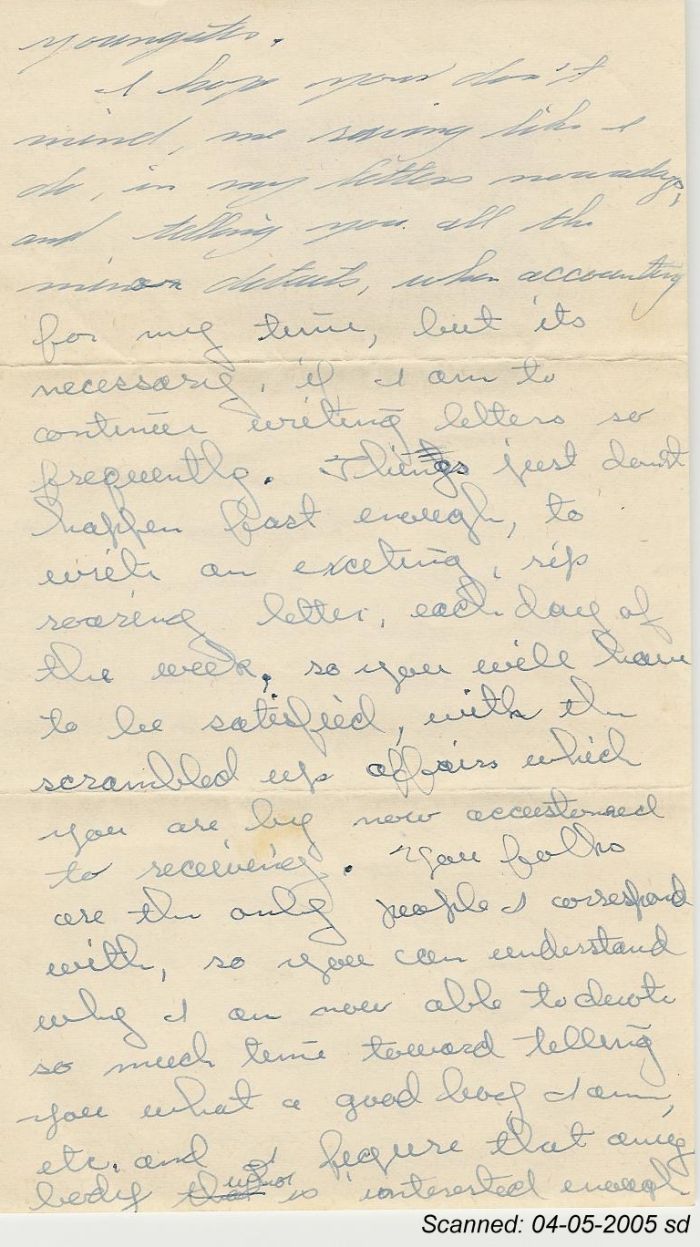 youngsters.
I hope your don't
mind, me raving like I
do, in my letters nowadays,
and telling you all the
minor details, when accounting
for my time, but its
necessary, if I am to
continue writing letters so
frequently. Things just don't
happen fast enough, to
write an exceting, rip
roaring letter, each day of
the week, so you will have
to be satisfied, with the
scrambled up affairs which
you are by now accustomed
to receiving. You folks
are the only people I correspond
with, so you can understand
why I am now able to devote
so much time toward telling
you what a good boy I am,
etc. and I figure that any
body that who is interested enough
Scanned: 04-05-2005 sd